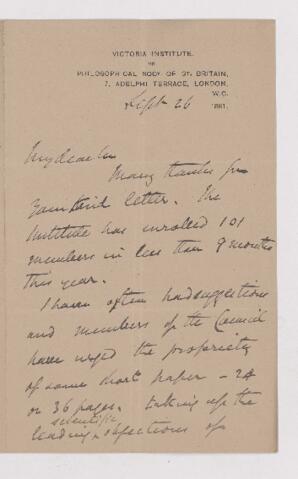 VICTORIA INSTITUTE,
OR
PHILOSOPHICAL SOCY OF GT. BRITAIN,
7, ADELPHI TERRACE, LONDON,
W.C.
Sept 26 1881.
My dear Sir
Many thanks for
your kind letter. The
Institute has enrolled 101
members in less than 9 months
this year.
I have often had suggestions
and members of the Council
have urged the propriety
of some short paper – 24
or 36 pages, taking up the
scientific
leading objections of